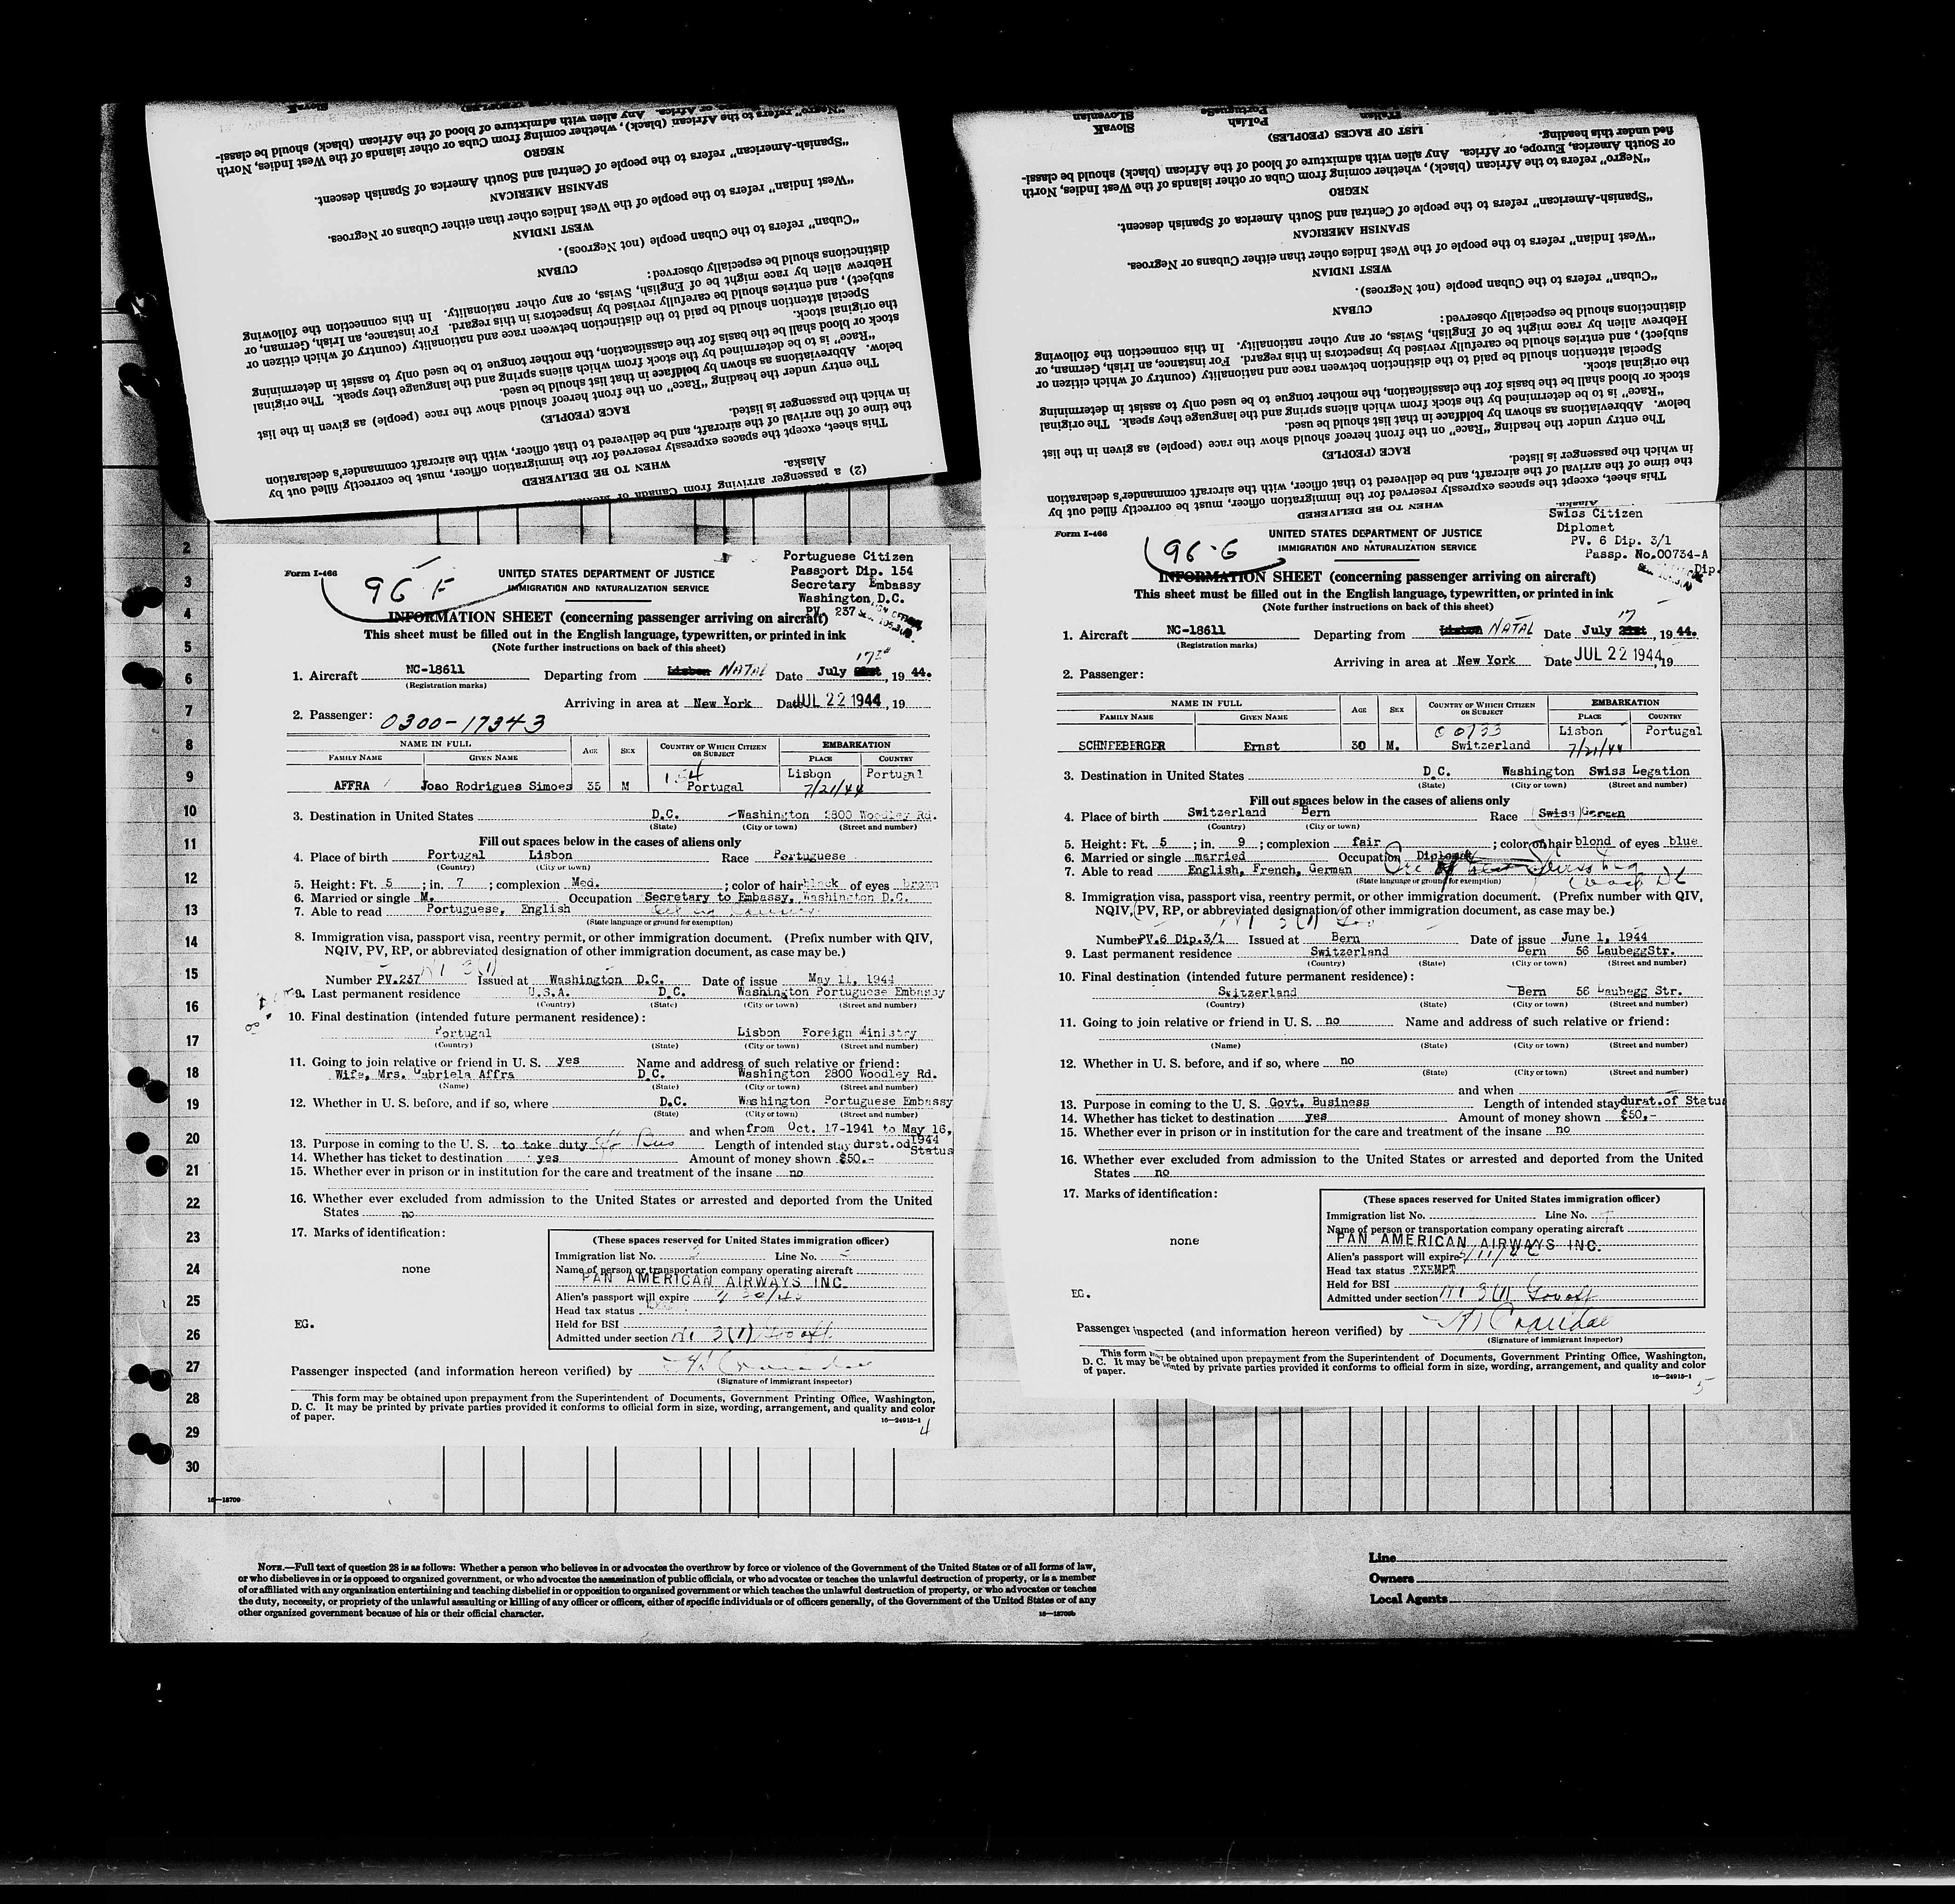 Slovak
"Negro" refers to the African (black), whether coming from Cuba or other islands of the West Indies, North
or South America, Europe, or Africa. Any alien with admixture of blood of the African (black) should be classi-
NEGRO
"Spanish-American" refers to the people of Central and South America of Spanish descent.
SPANISH AMERICAN
"West Indian" refers to the people of the West Indies other than either Cubans or Negroes.
WEST INDIAN
"Cuban" refers to the Cuban people (not Negroes).
CUBAN
distinctions should be especially observed:
Hebrew alien by race might be of English, Swiss, or any other nationality. In this connection the following
subject), and entries should be carefully revised by inspectors in this regard. For instance, an Irish, German, or
Special attention should be paid to the distinction between race and nationality (country of which citizen or
the original stock.
stock or blood shall be the basis for the classification, the mother tongue to be used only to assist in determining
"Race" is to be determined by the stock from which aliens spring and the language they speak. The original
below. Abbreviations as shown by boldface in that list should be used.
The entry under the heading "Race" on the front hereof should show the race (people) as given in the list
RACE (PEOPLE)
in which the passenger is listed.
the time of the arrival of the aircraft, and be delivered to that officer, with the aircraft commander's declaration
This sheet, except the spaces expressly reserved for the immigration officer, must be correctly filled out by
WHEN TO BE DELIVERED
Alaska.
(2) a passenger arriving from Canada or Mexico
Form I-466
96-F
UNITED STATES DEPARTMENT OF JUSTICE
IMMIGRATION AND NATURALIZATION SERVICE
Portuguese Citizen
Passport Dip. 154
Secretary Embassy
Washington D.C.
PV. 237
INFORMATION SHEET (concerning passenger arriving on aircraft)
This sheet must be filled out in the English language, typewritten, or printed in ink
(Note further instructions on back of this sheet)
1. Aircraft NC-18611 Departing from Lisbon NATAL Date July 17th, 1944.
(Registration marks)
Arriving in area at New York Date JUL 22 1944, 19
2. Passenger: 0300-17343
NAME IN FULL AGE SEX COUNTRY OF WHICH CITIZEN OR SUBJECT EMBARKATION
FAMILY NAME GIVEN NAME PLACE COUNTRY
AFFRA Joao Rodrigues Simoes 35 M 154 Portugal Lisbon 7/21/44 Portugal
3. Destination in United States D.C. Washington 2800 Woodley Rd.
(State) (City or town) (Street and number)
Fill out spaces below in the cases of aliens only
4. Place of birth Portugal Lisbon Race Portuguese
(Country) (City or town)
5. Height: Ft. 5; in. 7; complexion Med.; color of hair black of eyes brown
6. Married or single M. Occupation Secretary to Embassy, Washington D.C.
7. Able to read Portuguese, English
(State language or ground for exemption)
8. Immigration visa, passport visa, reentry permit, or other immigration document. (Prefix number with QIV,
NQIV, PV, RP, or abbreviated designation of other immigration document, as case may be.)
3(1)
Number PV.237 Issued at Washington D.C. Date of issue May 11, 1944
9. Last permanent residence U.S.A. D.C. Washington Portuguese Embassy
(Country) (State) (City or town) (Street and number)
10. Final destination (intended future permanent residence):
Portugal Lisbon Foreign Ministry
(Country) (State) (City or town) (Street and number)
11. Going to join relative or friend in U. S. yes Name and address of such relative or friend:
Wife, Mrs. Gabriela Affra D.C. Washington 2800 Woodley Rd.
(Name) (State) (City or town) (Street and number)
12. Whether in U. S. before, and if so, where D.C. Washington Portuguese Embassy
(State) (City or town) (Street and number)
and when from Oct. 17-1941 to May 16, 1944
13. Purpose in coming to the U. S. to take duty Off Bus Length of intended stay durat.od Status
14. Whether has ticket to destination yes Amount of money shown $50.-
15. Whether ever in prison or in institution for the care and treatment of the insane no
16. Whether ever excluded from admission to the United States or arrested and deported from the United
States no
17. Marks of identification:
none
EG.
(These spaces reserved for United States immigration officer)
Immigration list No. Line No.
Name of person or transportation company operating aircraft
PAN AMERICAN AIRWAYS INC.
Alien's passport will expire
Head tax status
Held for BSI
Admitted under section 3(1) Govoff
Passenger inspected (and information hereon verified) by
(Signature of immigrant inspector)
This form may be obtained upon prepayment from the Superintendent of Documents, Government Printing Office, Washington,
D. C. It may be printed by private parties provided it conforms to official form in size, wording, arrangement, and quality and color
of paper.
16—24915-1
4
Slovak Polish Portuguese Italian
Slovenian
LIST OF RACES (PEOPLES)
fied under this heading.
or South America, Europe, or Africa. Any alien with admixture of blood of the African (black) should be classi-
"Negro" refers to the African (black), whether coming from Cuba or other islands of the West Indies, North
NEGRO
"Spanish-American" refers to the people of Central and South America of Spanish descent.
SPANISH AMERICAN
"West Indian" refers to the people of the West Indies other than either Cubans or Negroes.
WEST INDIAN
"Cuban" refers to the Cuban people (not Negroes).
CUBAN
distinctions should be especially observed:
Hebrew alien by race might be of English, Swiss, or any other nationality. In this connection the following
subject), and entries should be carefully revised by inspectors in this regard. For instance, an Irish, German, or
Special attention should be paid to the distinction between race and nationality (country of which citizen or
the original stock.
stock or blood shall be the basis for the classification, the mother tongue to be used only to assist in determining
"Race" is to be determined by the stock from which aliens spring and the language they speak. The original
below. Abbreviations as shown by boldface in that list should be used.
The entry under the heading "Race" on the front hereof should show the race (people) as given in the list
RACE (PEOPLE)
in which the passenger is listed.
the time of the arrival of the aircraft, and be delivered to that officer, with the aircraft commander's declaration
This sheet, except the spaces expressly reserved for the immigration officer, must be correctly filled out by
WHEN TO BE DELIVERED
Alaska.
Form I-466
96-G
UNITED STATES DEPARTMENT OF JUSTICE
IMMIGRATION AND NATURALIZATION SERVICE
Swiss Citizen
Diplomat
PV. 6 Dip. 3/1
Passp. No.00734-A
Dip.
INFORMATION SHEET (concerning passenger arriving on aircraft)
This sheet must be filled out in the English language, typewritten, or printed in ink
(Note further instructions on back of this sheet)
1. Aircraft NC-18611 Departing from Lisbon NATAL Date July 21st 17, 1944.
(Registration marks)
Arriving in area at New York Date JUL 22 1944, 19
2. Passenger:
NAME IN FULL AGE SEX COUNTRY OF WHICH CITIZEN OR SUBJECT EMBARKATION
FAMILY NAME GIVEN NAME PLACE COUNTRY
SCHNEEBERGER Ernst 30 M. Switzerland Lisbon 7/21/44 Portugal
3. Destination in United States D.C. Washington Swiss Legation
(State) (City or town) (Street and number)
Fill out spaces below in the cases of aliens only
4. Place of birth Switzerland Bern Race (Swiss) German
(Country) (City or town)
5. Height: Ft. 5; in. 9; complexion fair; color of hair blond of eyes blue
6. Married or single married Occupation Diplomat
7. Able to read English, French, German
(State language or ground for exemption)
8. Immigration visa, passport visa, reentry permit, or other immigration document. (Prefix number with QIV,
NQIV, PV, RP, or abbreviated designation of other immigration document, as case may be.)
3(1)
Number PV.6 Dip.3/1 Issued at Bern Date of issue June 1, 1944
9. Last permanent residence Switzerland Bern 56 LaubeggStr.
(Country) (State) (City or town) (Street and number)
10. Final destination (intended future permanent residence):
Switzerland Bern 56 Laubegg Str.
(Country) (State) (City or town) (Street and number)
11. Going to join relative or friend in U. S. no Name and address of such relative or friend:
(Name) (State) (City or town) (Street and number)
12. Whether in U. S. before, and if so, where no
(State) (City or town) (Street and number)
and when
13. Purpose in coming to the U. S. Govt. Business Length of intended stay durat.of Status
14. Whether has ticket to destination yes Amount of money shown $50.-
15. Whether ever in prison or in institution for the care and treatment of the insane no
16. Whether ever excluded from admission to the United States or arrested and deported from the United
States no
17. Marks of identification:
none
EG.
(These spaces reserved for United States immigration officer)
Immigration list No. Line No.
Name of person or transportation company operating aircraft
PAN AMERICAN AIRWAYS INC.
Alien's passport will expire
Head tax status EXEMPT
Held for BSI
Admitted under section 3(1) Govoff
Passenger inspected (and information hereon verified) by
(Signature of immigrant inspector)
This form may be obtained upon prepayment from the Superintendent of Documents, Government Printing Office, Washington,
D. C. It may be printed by private parties provided it conforms to official form in size, wording, arrangement, and quality and color
of paper.
16—24915-1
5
2
3
4
5
6
7
8
9
10
11
12
13
14
15
16
17
18
19
20
21
22
23
24
25
26
27
28
29
30
16—18709
NOTE.—Full text of question 28 is as follows: Whether a person who believes in or advocates the overthrow by force or violence of the Government of the United States or of all forms of law,
or who disbelieves in or is opposed to organized government, or who advocates the assassination of public officials, or who advocates or teaches the unlawful destruction of property, or is a member
of or affiliated with any organization entertaining and teaching disbelief in or opposition to organized government or which teaches the unlawful destruction of property, or who advocates or teaches
the duty, necessity, or propriety of the unlawful assaulting or killing of any officer or officers, either of specific individuals or of officers generally, of the Government of the United States or of any
other organized government because of his or their official character.
16—18709b
Line
Owners
Local Agents